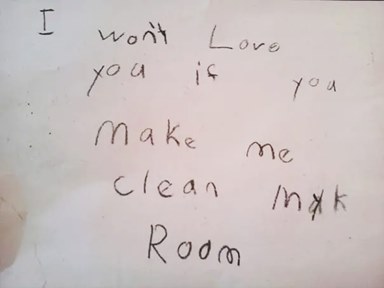 I won't Love
you if you
make me
clean myk
Room